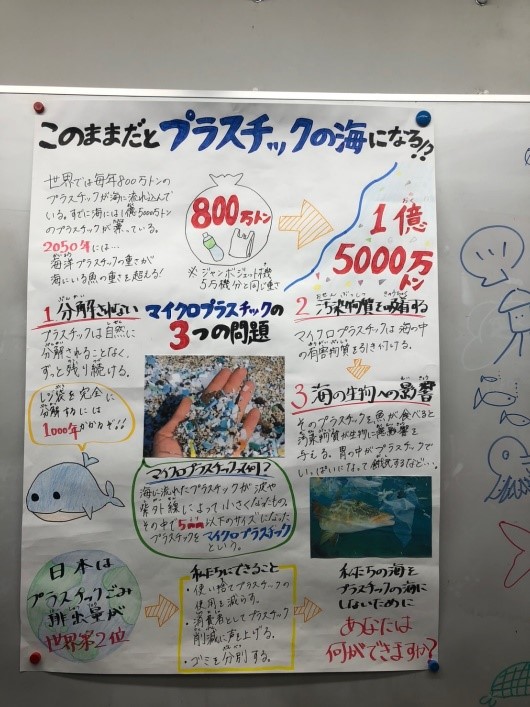 このままだとプラスチックの海になる!?
世界では毎年800万トンの
プラスチックが海に流れ込んで
いる。すでに海には1億5000万トン
のプラスチックが漂っている。
2050年には…
海洋プラスチックの重さが
海にいる魚の重さを超える!
800万トン
※ジャンボジェット機
5万機分と同じ重さ
1億
5000万
トン
マイクロプラスチックの
3つの問題
1 分解されない
プラスチックは自然に
分解されることなく、
ずっと残り続ける。
レジ袋を完全に
分解するには
1000年かかる!!
2 汚染物質を吸着する
マイクロプラスチックは海の中
の有害物質を引き付ける。
3 海の生物への影響
そのプラスチックを魚が食べると
汚染物質が生物に悪影響を
与える。胃の中がプラスチックで
いっぱいになって餓死するなど…。
マイクロプラスチックって何?
海に流れたプラスチックが波や
紫外線によって小さくなったもの。
その中で5mm以下のサイズになった
プラスチックをマイクロプラスチック
という。
日本は
プラスチックごみ
排出量が
世界第2位
私たちにできること
・使い捨てプラスチックの
使用を減らす。
・消費者としてプラスチック
削減に声を上げる。
・ゴミを分別する。
私たちの海を
プラスチックの海に
しないために
あなたは
何ができますか?